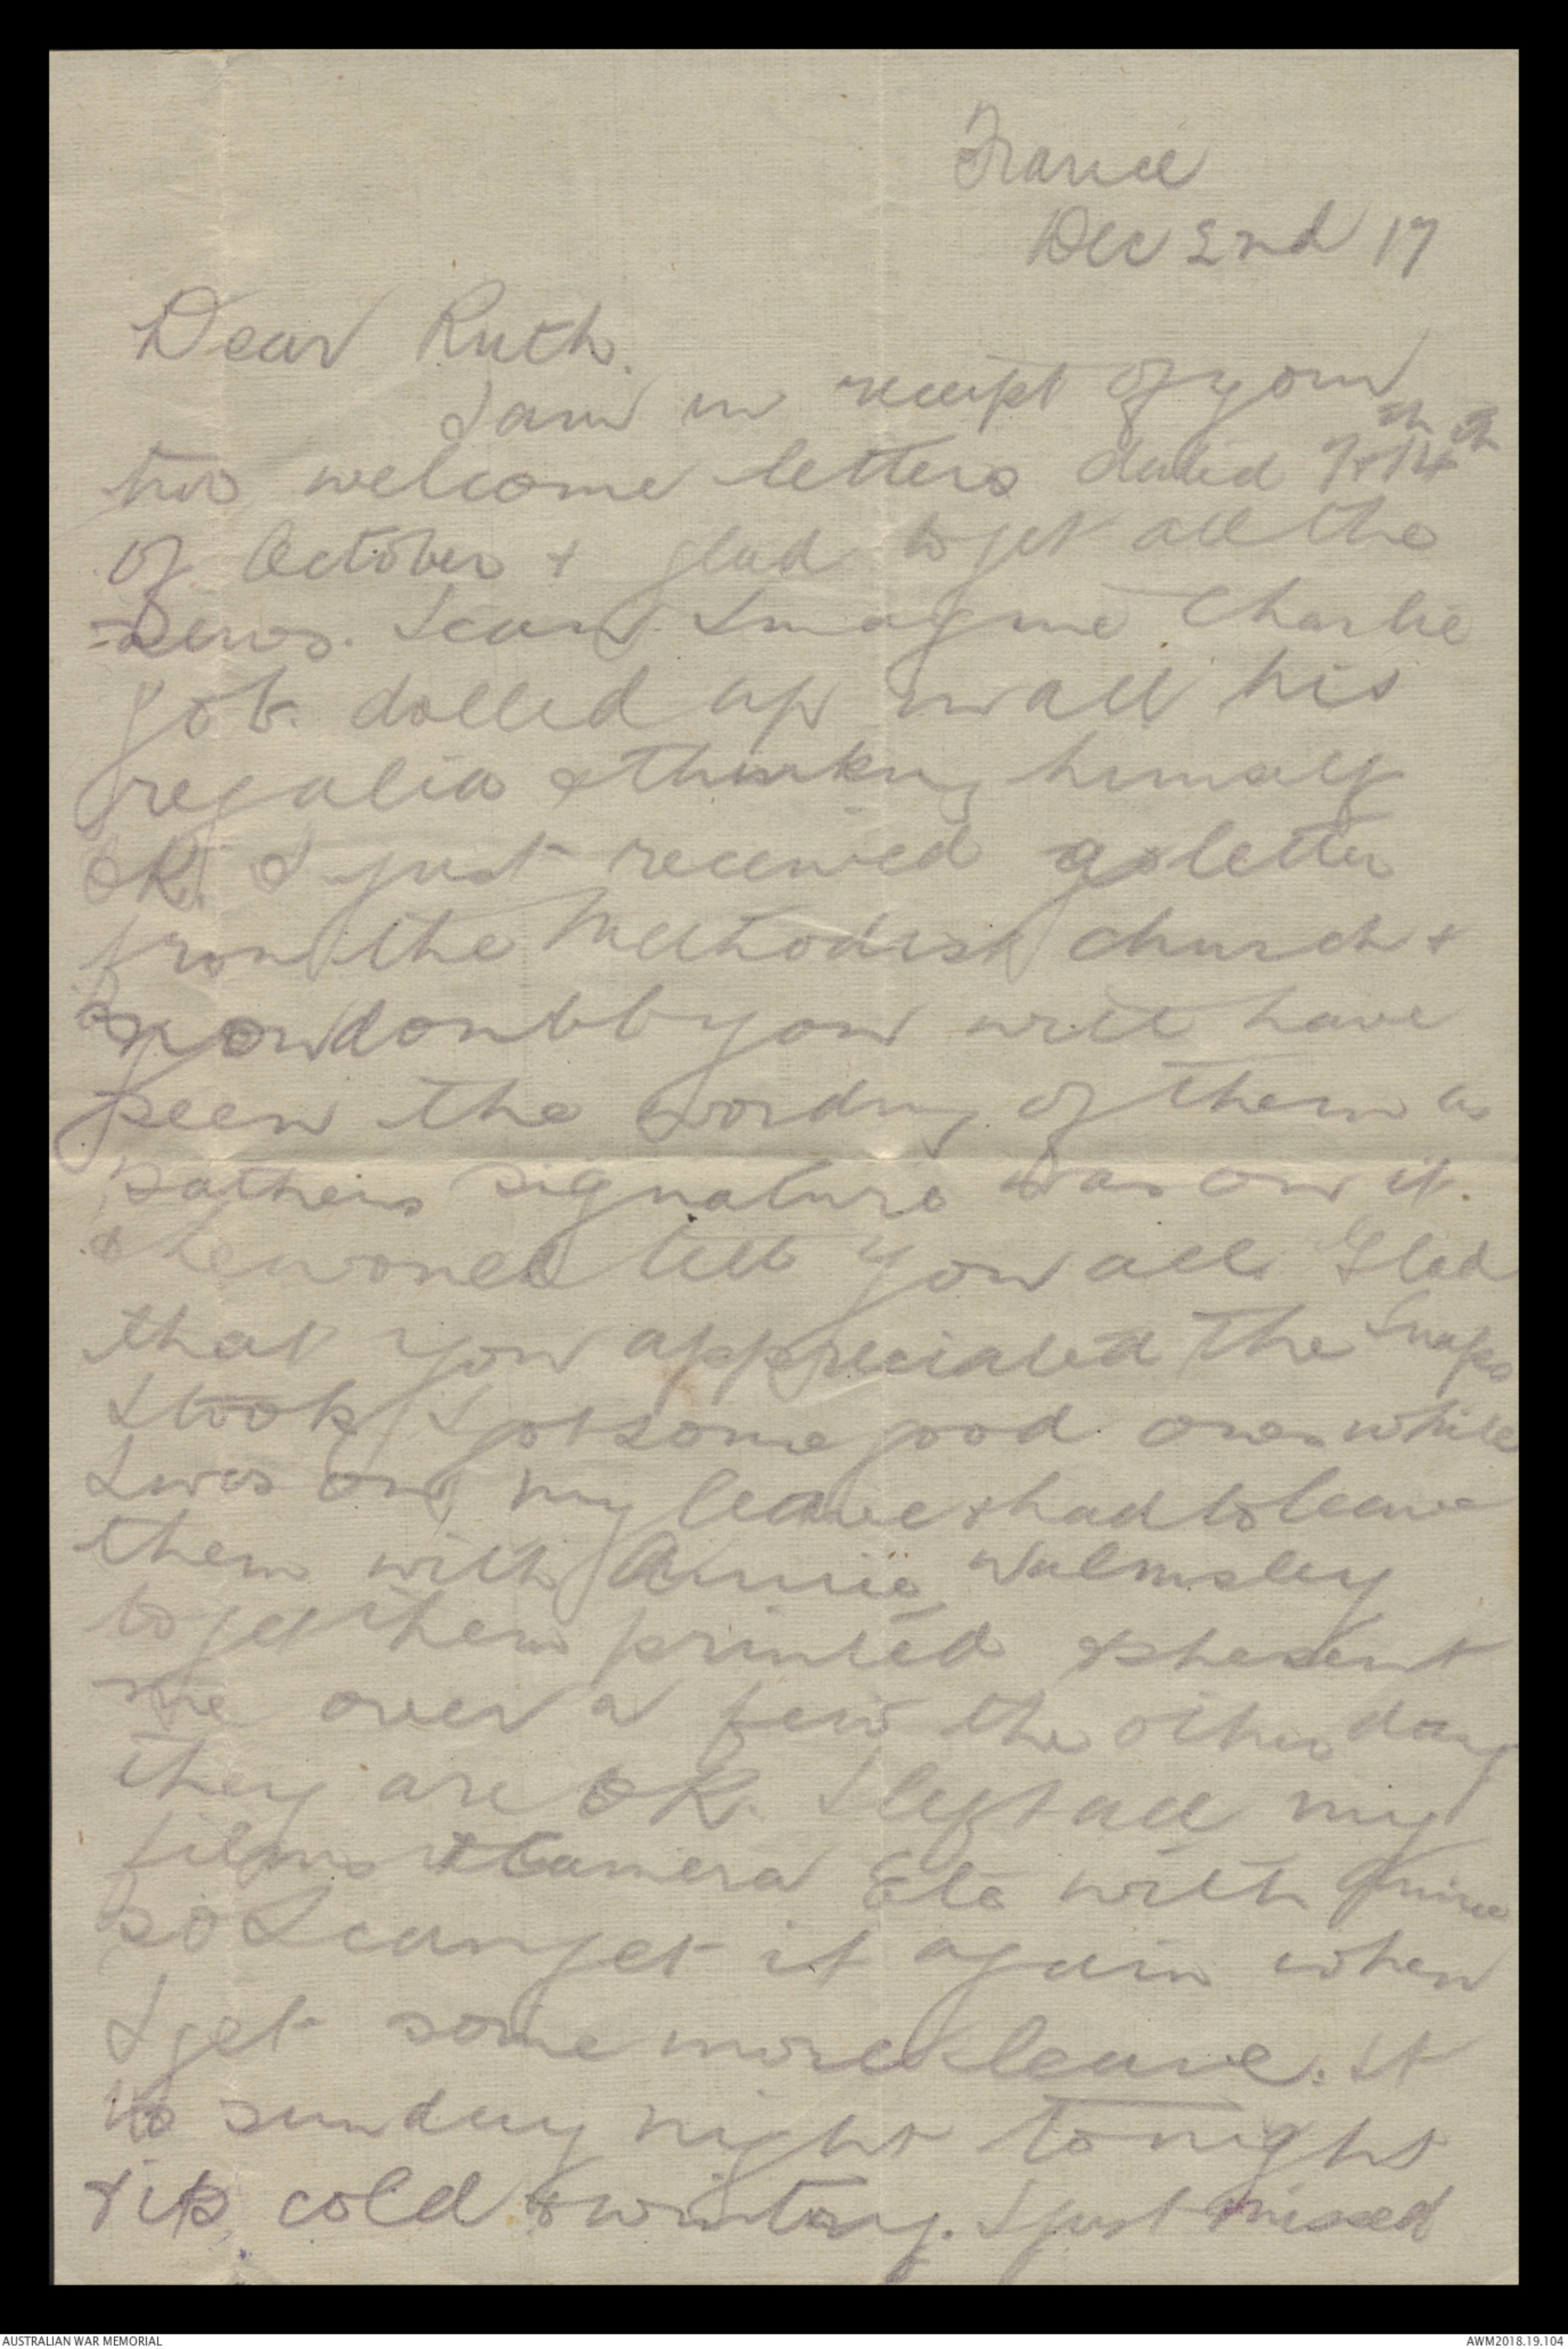 France
Dec 2nd 17
Dear Ruth.
I am in receipt of your
two welcome letters dated 7th + 14th
of October + glad to get all the
News. I can Imagine Charlie
got dolled up in all his
regalia & thinking himself
OK. I just received a letter
from the Methodist church +
now doubt you will have
seen the wording of them as
Fathers signature was on it.
& he would tell you all. Glad
that you appreciated the Snaps
I took, I got some good ones while
I was on my leave & had to leave
them with Annie Walmsley
to get them printed & she sent
me over a few the other day
they are OK. I left all my
films & Camera Etc with Annie
so I can get it again when
I get some more leave. It
is sunday night tonight
+ is cold & wintery. I just missed
AUSTRALIAN WAR MEMORIAL
AWM2018.19.104